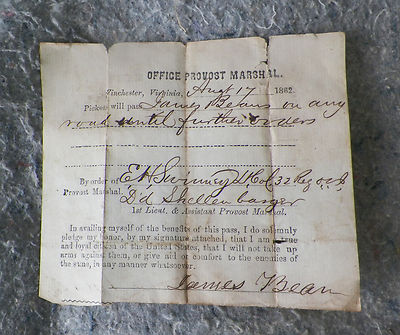 OFFICE PROVOST MARSHAL.
Winchester, Virginia, Augt 17 1862.
Pickets will pass James Beans on any
road until further orders
By order of E H Swinney Lt Col 32 Reg
Provost Marshal. D'd Shellenbarger
1st Lieut. & Assistant Provost Marshal.
In availing myself of the benefits of this pass, I do solemnly
pledge my honor, by my signature attached, that I am a true
and loyal citizen of the United States, that I will not take up
arms against them, or give aid or comfort to the enemies of
the same, in any manner whatsoever.
James Bean